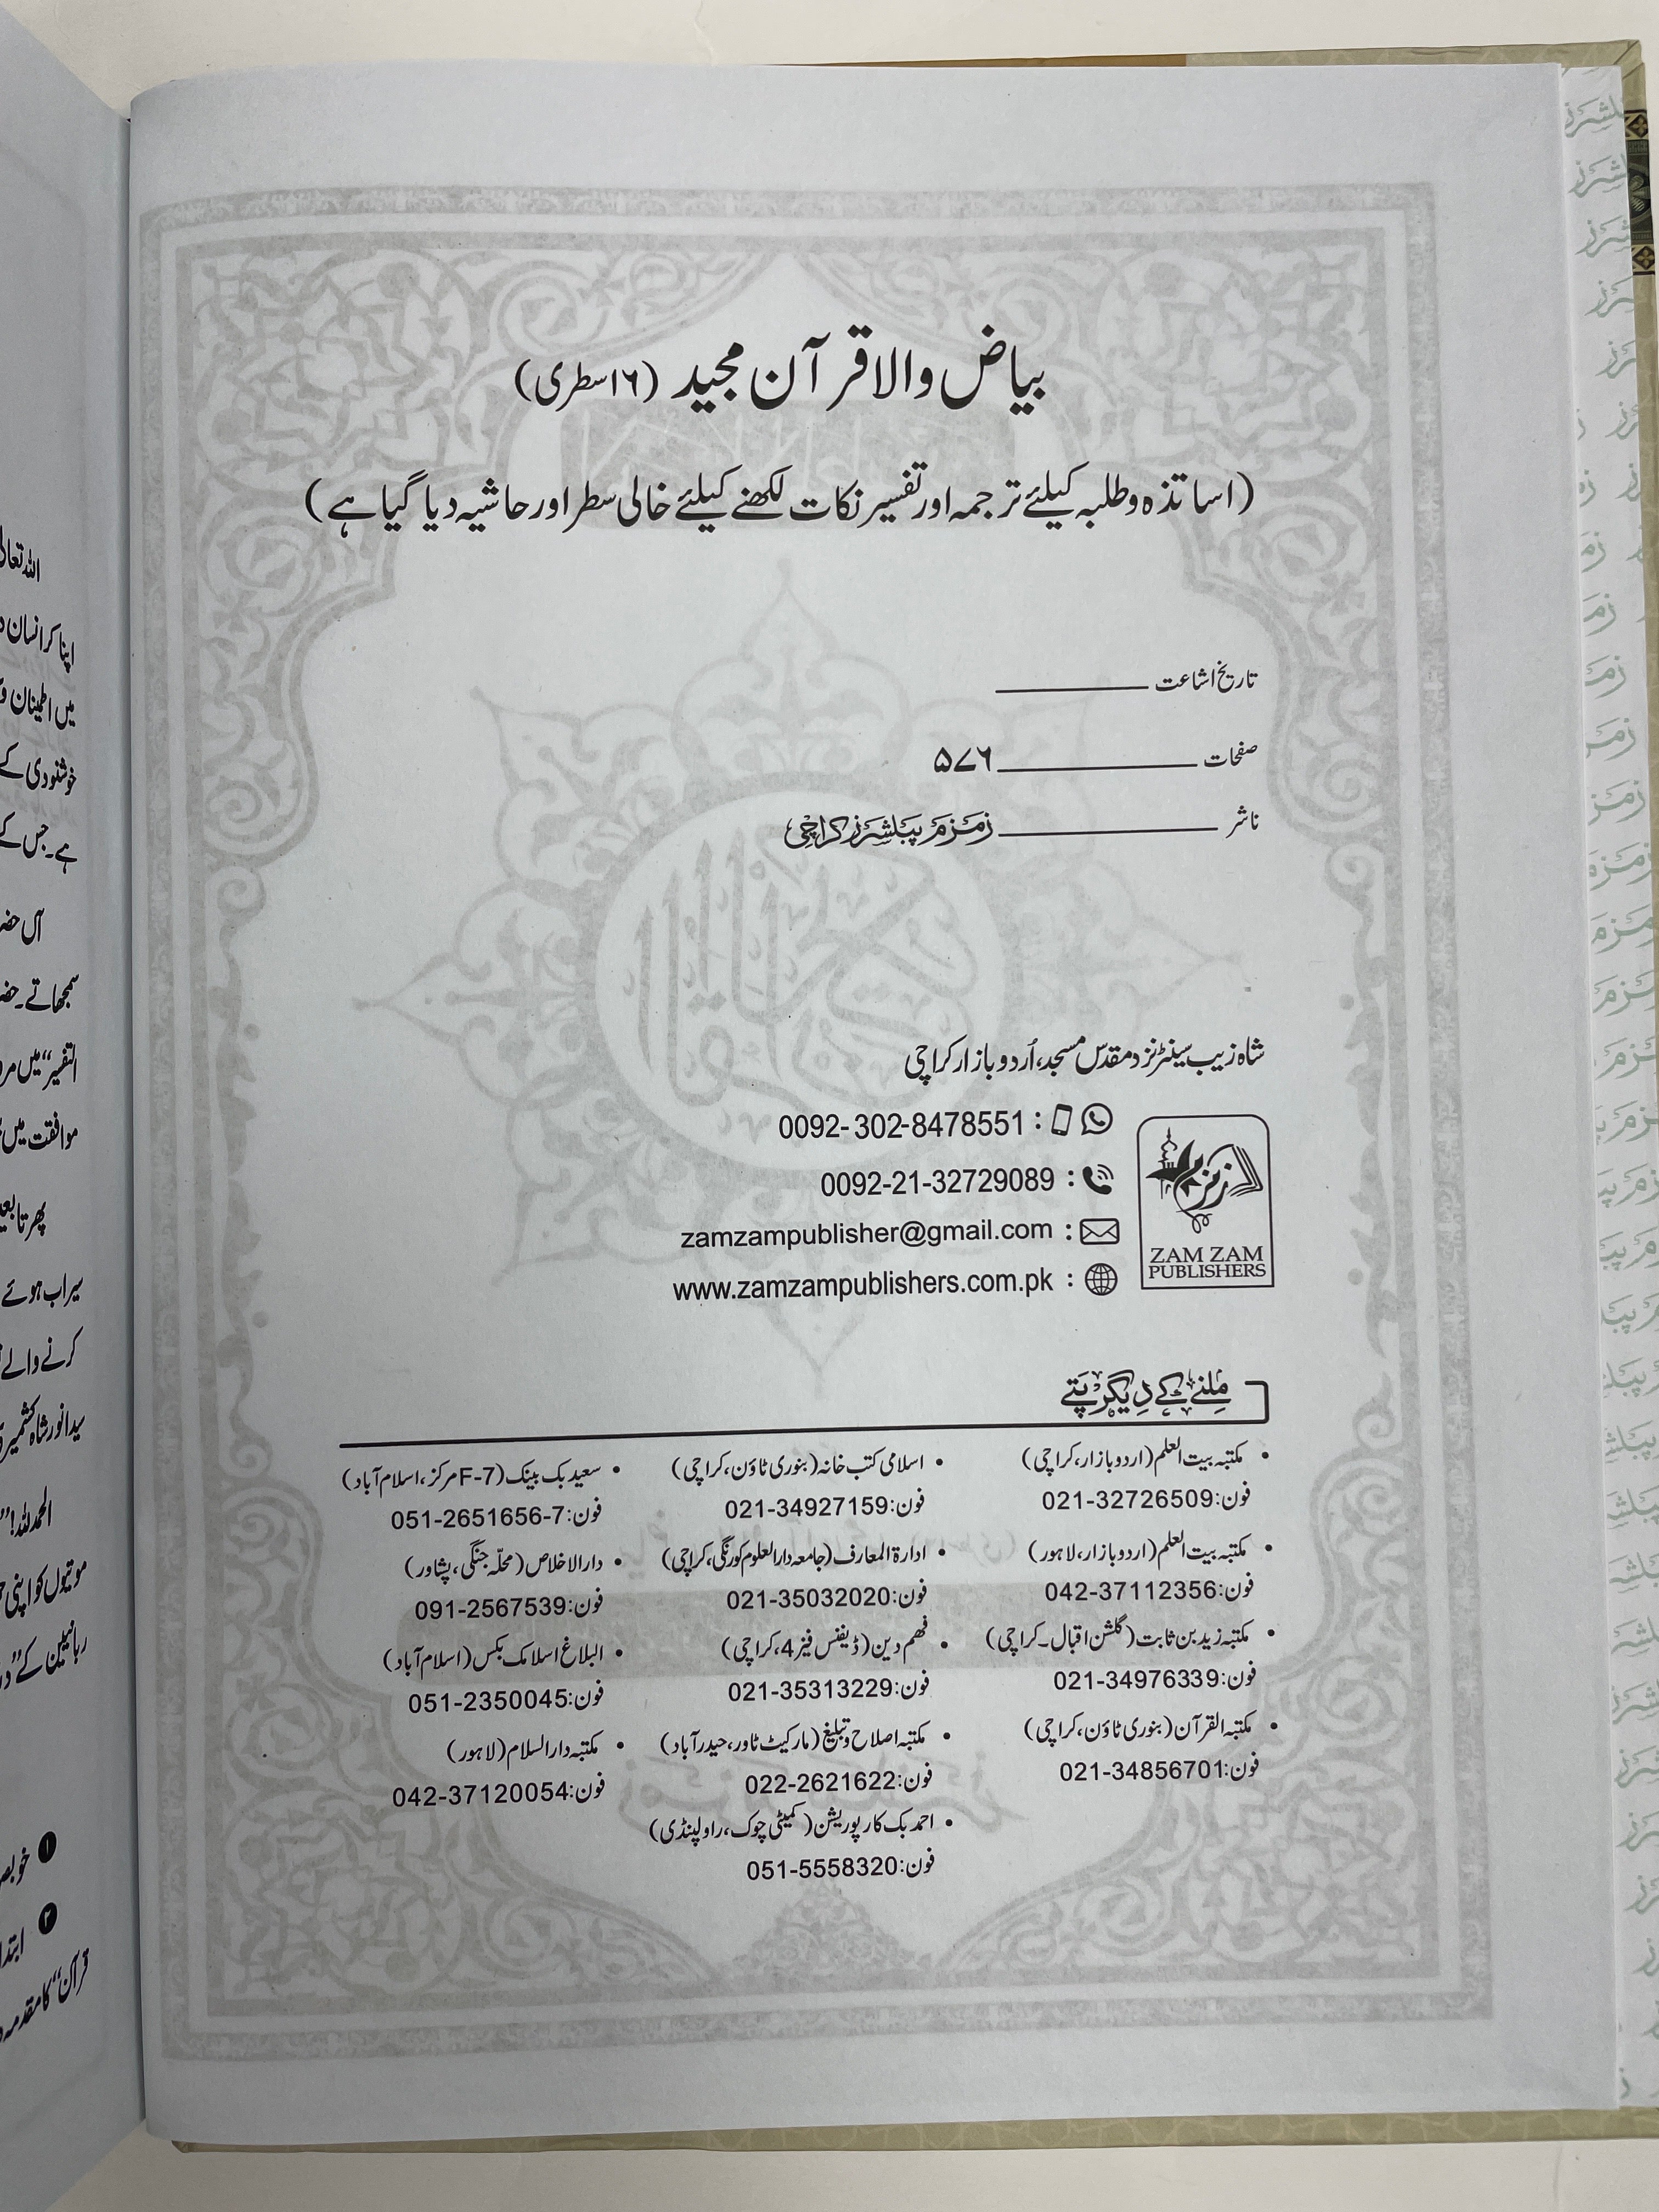 بیاض والا قرآن مجید (۱۶ سطری)
(اساتذہ و طلبہ کیلئے ترجمہ اور تفسیر نکات لکھنے کیلئے خالی سطر اور حاشیہ دیا گیا ہے)
تاریخ اشاعت
صفحات ۵۷۶
ناشر زمزم پبلشرز کراچی
شاہ زیب سینٹر نزد مقدس مسجد، اُردو بازار کراچی
0092-302-8478551 :
0092-21-32729089 :
zamzampublisher@gmail.com :
www.zamzampublishers.com.pk :
زمزم
ZAM ZAM
PUBLISHERS
ملنے کے دیگر پتے
• مکتبہ بیت العلم (اردو بازار، کراچی)
فون: 021-32726509
• مکتبہ بیت العلم (اردو بازار، لاہور)
فون: 042-37112356
• مکتبہ زید بن ثابت (گلشن اقبال۔ کراچی)
فون: 021-34976339
• مکتبہ القرآن (بنوری ٹاؤن، کراچی)
فون: 021-34856701
• اسلامی کتب خانہ (بنوری ٹاؤن، کراچی)
فون: 021-34927159
• ادارۃ المعارف (جامعہ دارالعلوم کورنگی، کراچی)
فون: 021-35032020
• فہم دین (ڈیفنس فیز 4، کراچی)
فون: 021-35313229
• مکتبہ اصلاح و تبلیغ (مارکیٹ ٹاور، حیدرآباد)
فون: 022-2621622
• احمد بک کارپوریشن (کمیٹی چوک، راولپنڈی)
فون: 051-5558320
• سعید بک بینک (F-7 مرکز، اسلام آباد)
فون: 051-2651656-7
• دارالاخلاص (محلّہ جنگی، پشاور)
فون: 091-2567539
• البلاغ اسلامک بکس (اسلام آباد)
فون: 051-2350045
• مکتبہ دارالسلام (لاہور)
فون: 042-37120054